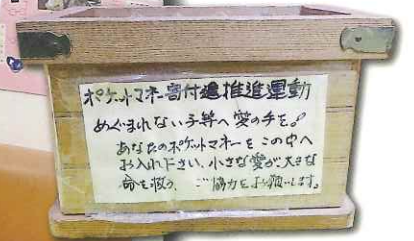 ポケットマネー寄付運推進運動
めぐまれない子等へ愛の手を。
あなたのポケットマネーをこの中へ
お入れ下さい、小さな愛が大きな
命を救う、ご協力をお願いします。